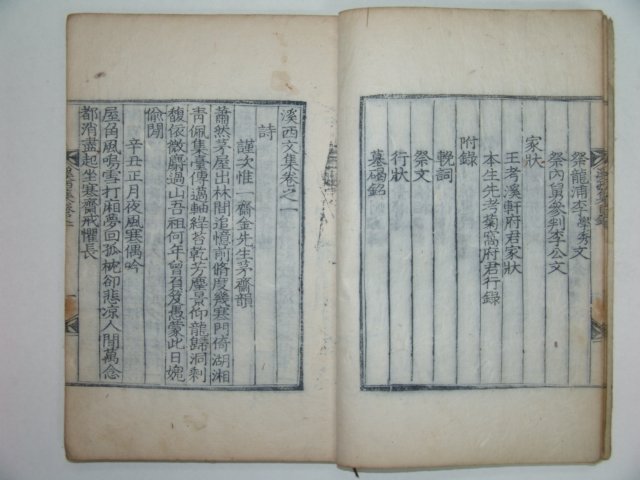 祭龍浦李學秀文
祭內舅參判李公文
家狀
王考溪軒府君家狀
本生先考菊窩府君行錄
附錄
輓詞
祭文
行狀
墓碣銘
溪西文集卷之一
詩
謹次惟一齋金先生茅齋韻
蕭然茅屋出林間追憶前脩度幾寒門倚湖湘
靑佩集臺傳邁軸綠苔乾芳塵景仰龍歸洞剩
馥依微鷹過山吾祖何年曾負笈愚蒙此日婉
偸閒
辛丑正月夜風寒偶吟
屋角風鳴雪打廂夢回孤枕却悲凉人間萬念
都消盡起坐寒齋戒懼長